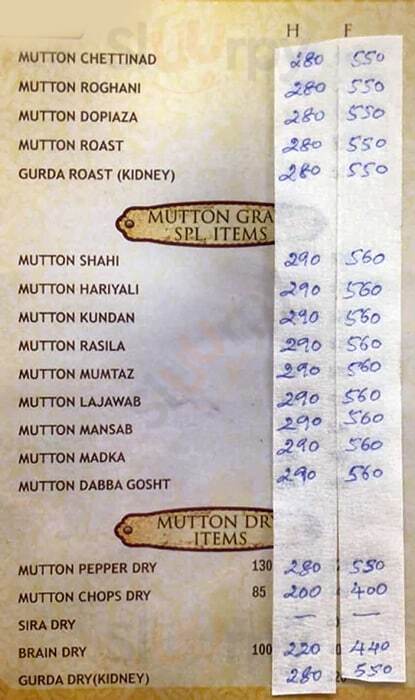 H F
MUTTON CHETTINAD 280 550
MUTTON ROGHANI 280 550
MUTTON DOPIAZA 280 550
MUTTON ROAST 280 550
GURDA ROAST (KIDNEY) 280 550
MUTTON GRA
SPL. ITEMS
MUTTON SHAHI 290 560
MUTTON HARIYALI 290 560
MUTTON KUNDAN 290 560
MUTTON RASILA 290 560
MUTTON MUMTAZ 290 560
MUTTON LAJAWAB 290 560
MUTTON MANSAB 290 560
MUTTON MADKA 290 560
MUTTON DABBA GOSHT 290 560
MUTTON DRY
ITEMS
MUTTON PEPPER DRY 130 280 550
MUTTON CHOPS DRY 85 200 400
SIRA DRY — —
BRAIN DRY 100 220 440
GURDA DRY(KIDNEY) 280 550